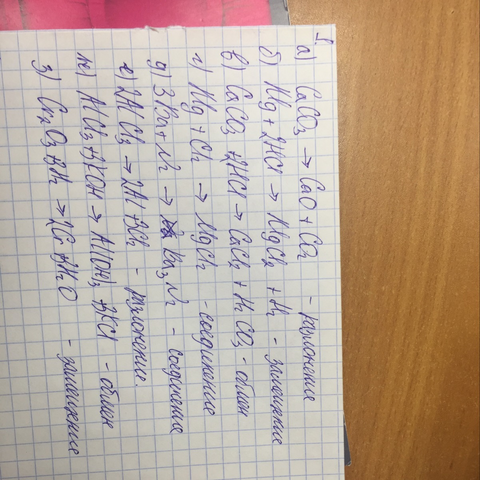 I.
а) CaCO3 → CaO + CO2 - разложение
б) Mg + 2HCl → MgCl2 + H2 - замещение
в) CaCO3 + 2HCl → CaCl2 + H2CO3 - обмен
г) Mg + Cl2 → MgCl2 - соединение
д) 3Ba + N2 → Ba3N2 - соединение
е) 2AlCl3 → 2Al + 3Cl2 - разложение.
ж) AlCl3 + 3KOH → Al(OH)3 + 3KCl - обмен
з) Cr2O3 + 3H2 → 2Cr + 3H2O - замещение